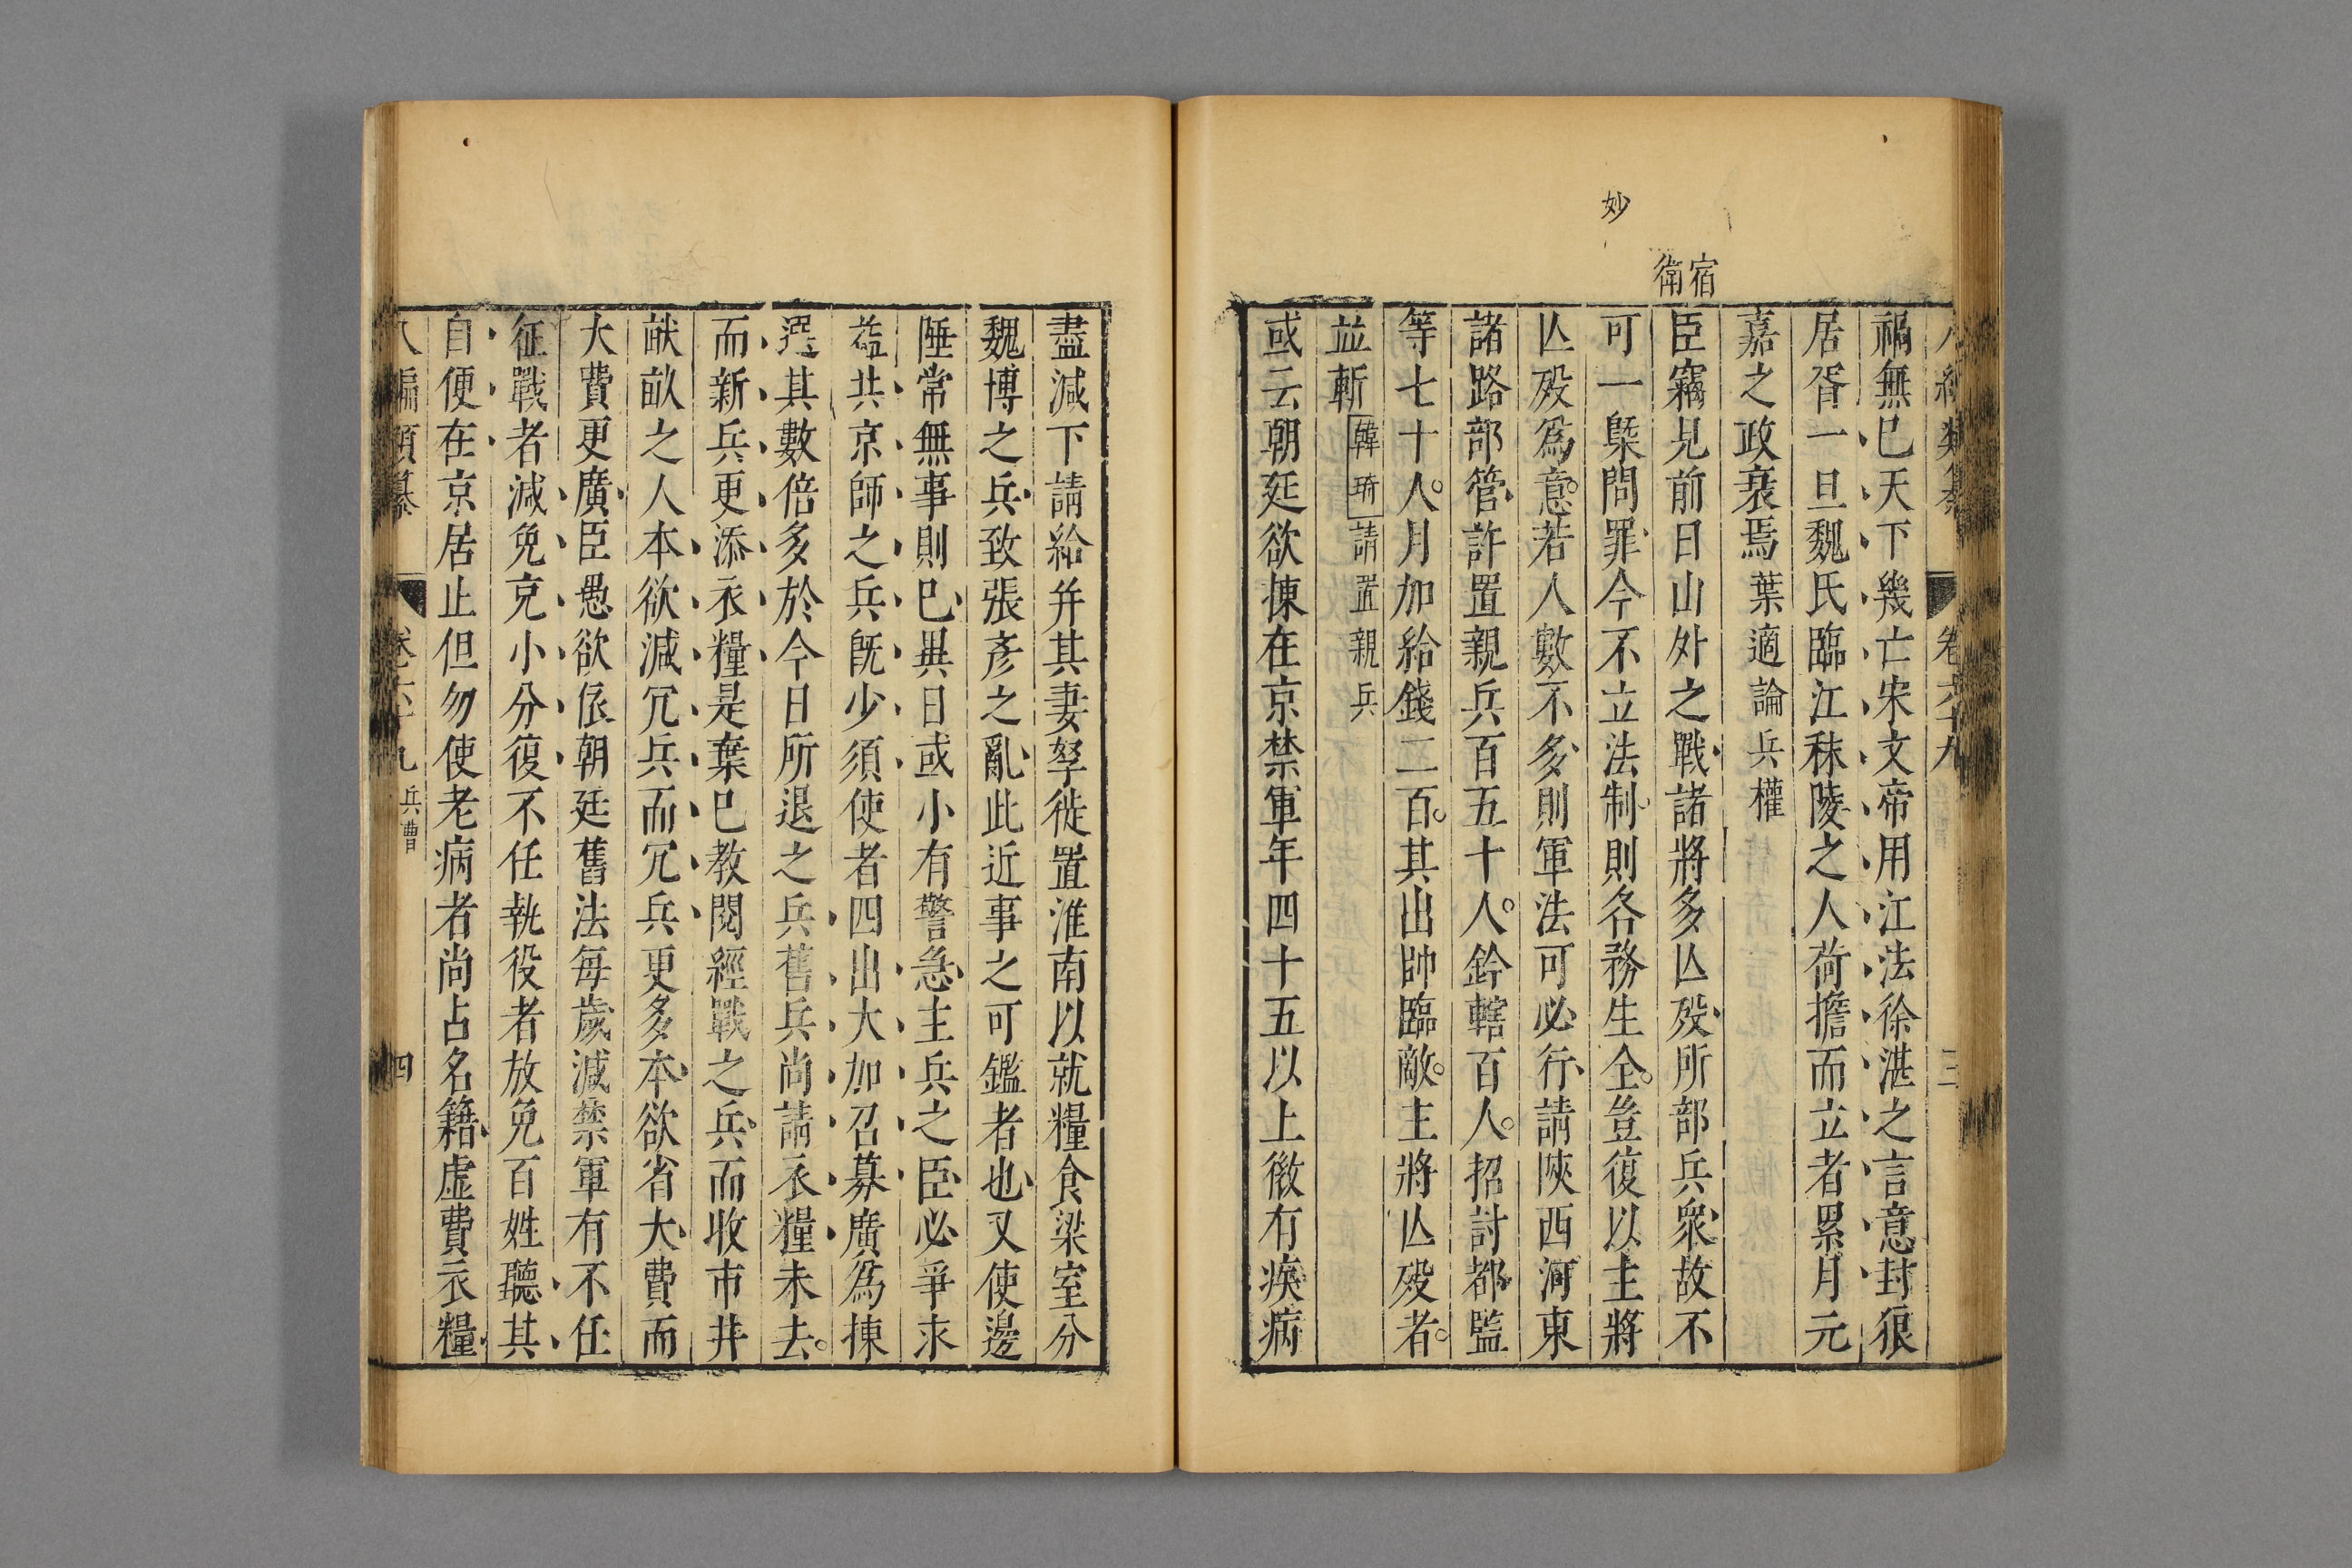 妙
宿
衛
卷六十九
三
禍無已天下幾亡宋文帝用江法徐湛之言意封狼
居胥一旦魏氏臨江秣陵之人荷擔而立者累月元
嘉之政衰焉葉適論兵權
臣竊見前日山外之戰諸將多亾歿所部兵衆故不
可一槩問罪今不立法制則各務生全豈復以主將
亾歿爲意若人數不多則軍法可必行請陝西河東
諸路部管許置親兵百五十人鈐轄百人招討都監
等七十人月加給錢二百其出帥臨敵主將亾歿者
並斬韓琦請置親兵
或云朝廷欲揀在京禁軍年四十五以上微有疾病
盡減下請給并其妻孥徙置淮南以就糧食梁室分
魏博之兵致張彥之亂此近事之可鑑者也又使邊
陲常無事則已異日或小有警急主兵之臣必爭求
益共京師之兵既少須使者四出大加召募廣爲揀
選其數倍多於今日所退之兵舊兵尚請衣糧未去
而新兵更添衣糧是棄已教閱經戰之兵而收市井
畎畝之人本欲減冗兵而冗兵更多本欲省大費而
大費更廣臣愚欲依朝廷舊法每歲減禁軍有不任
征戰者減免充小分復不任執役者放免百姓聽其
自便在京居止但勿使老病者尚占名籍虛費衣糧
八編類纂
卷六十九兵曹
四